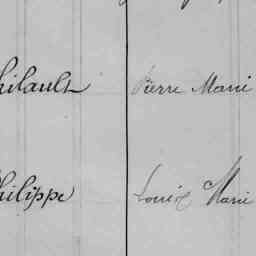 hilault Pierre Marie
hilippe Louis Marie